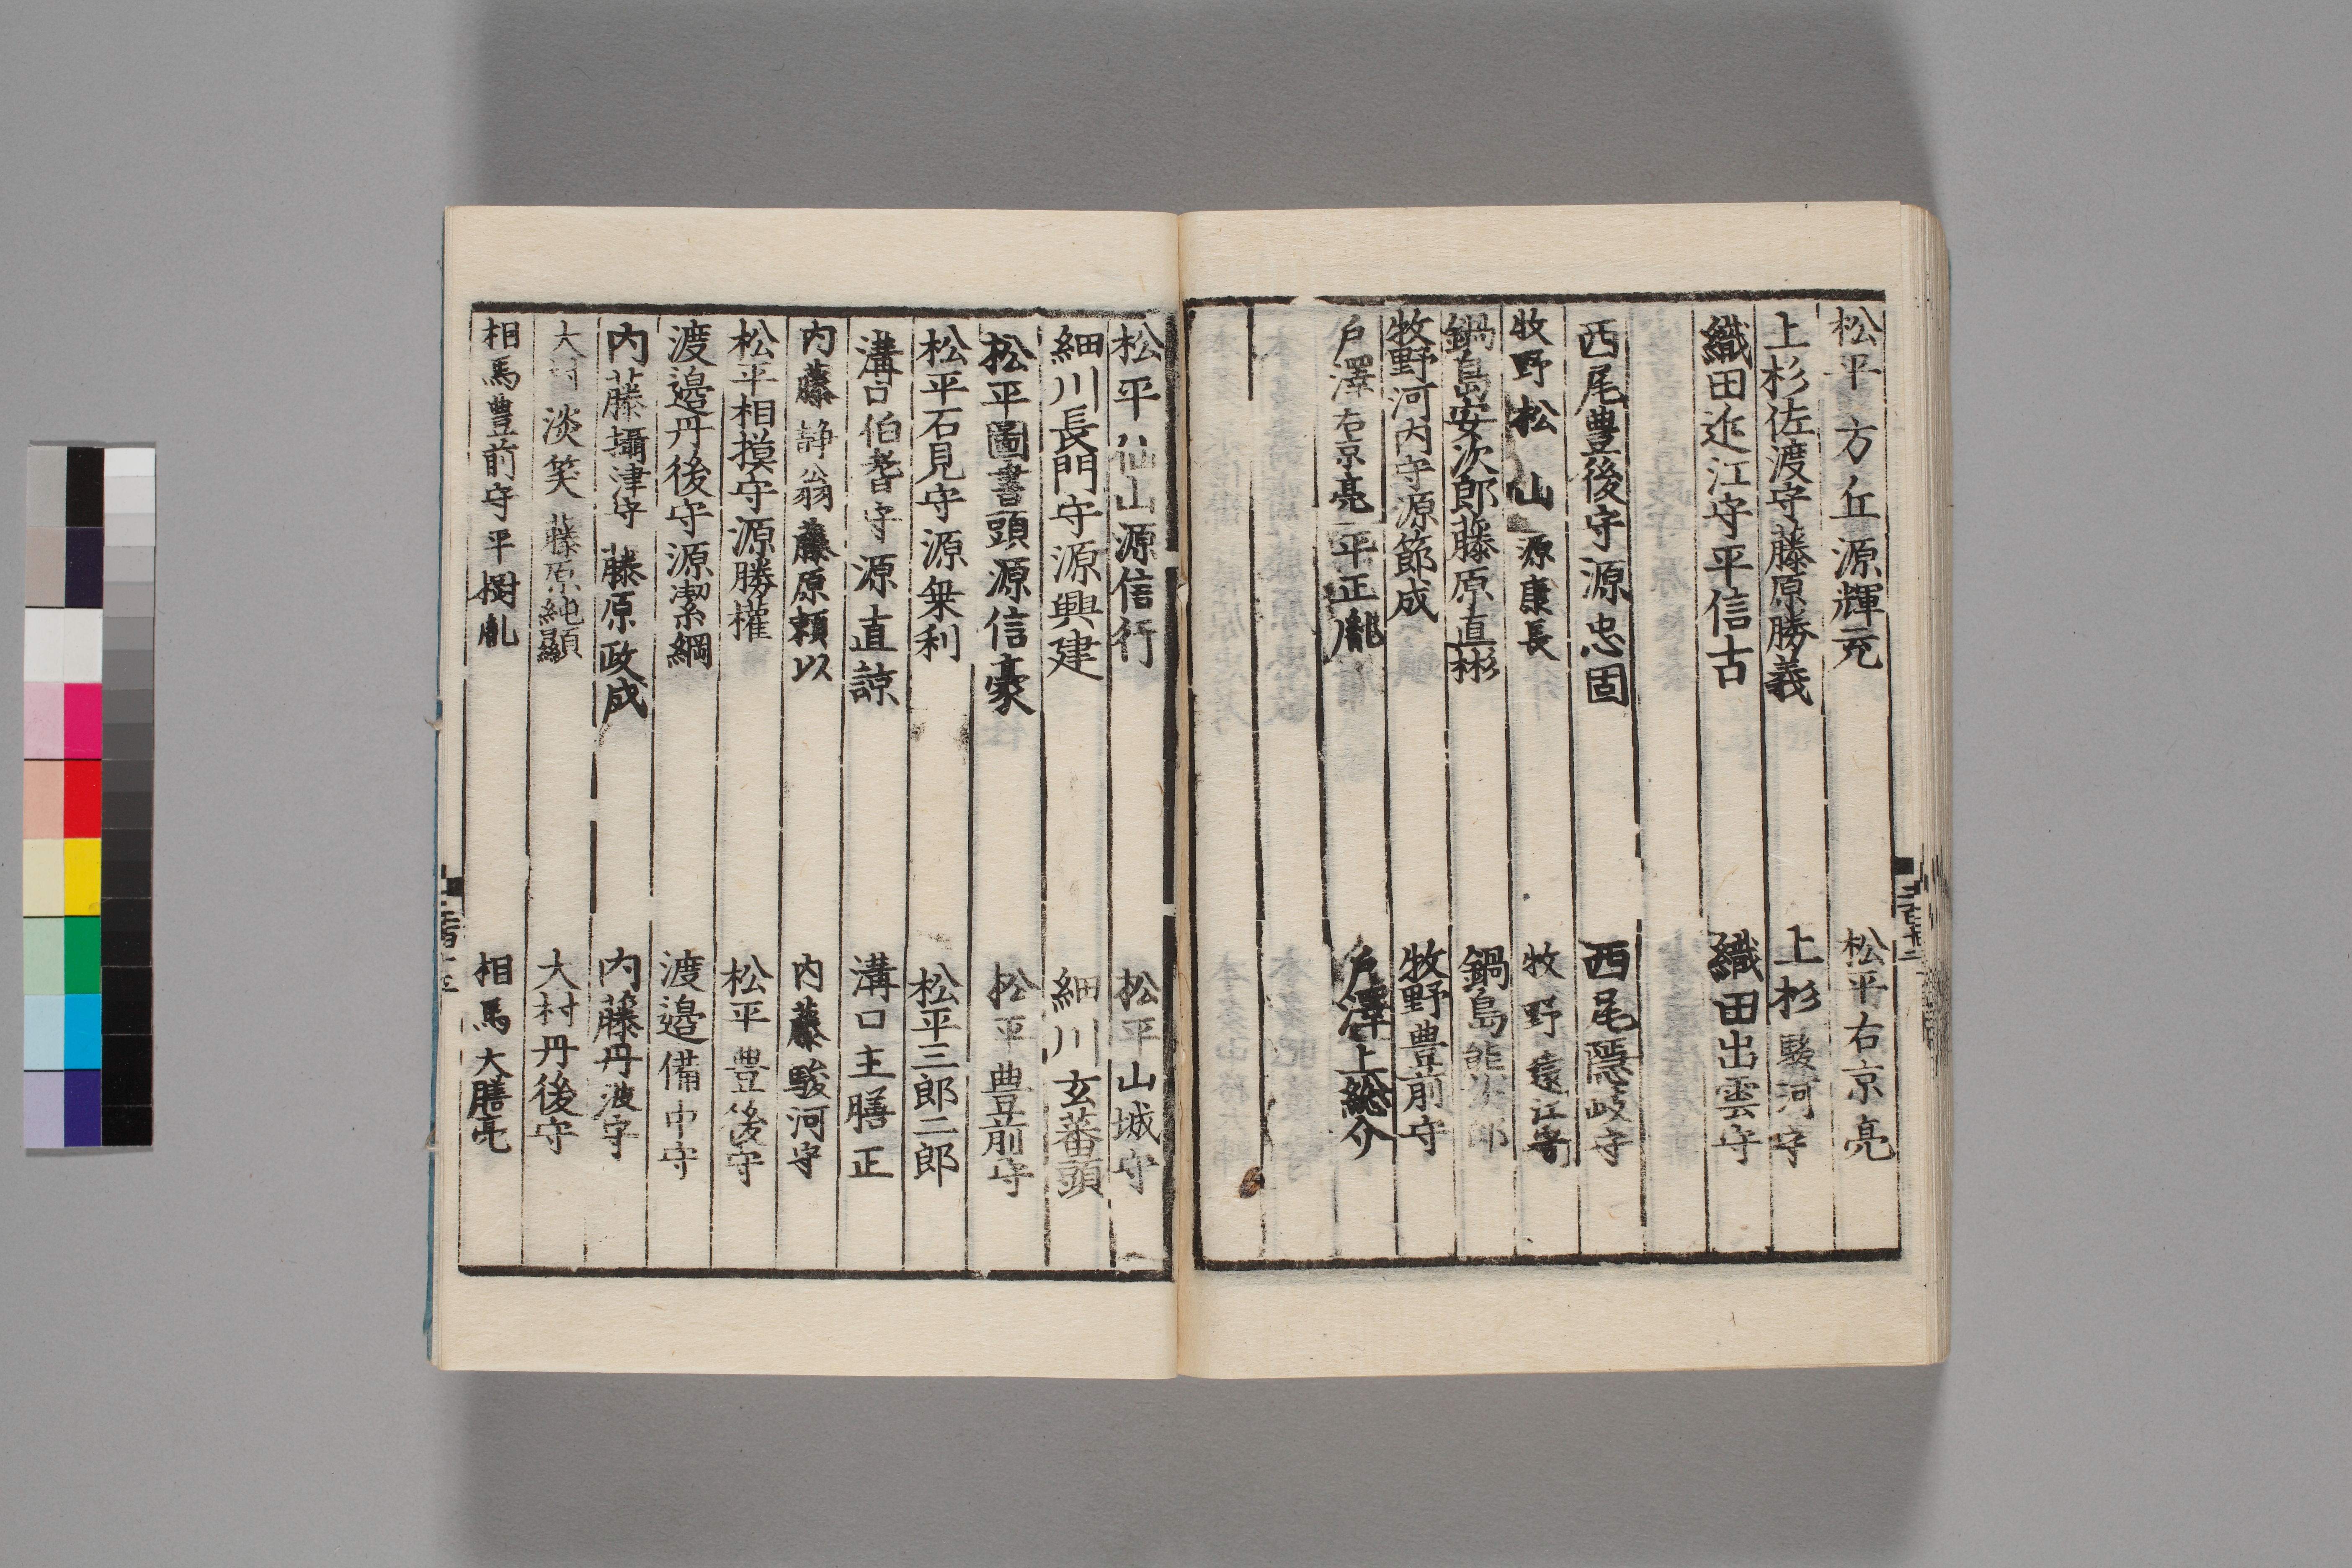 松平方丘源輝充　松平右京亮
上杉佐渡守藤原勝義　上杉駿河守
織田近江守平信古　織田出雲守
西尾豊後守源忠固　西尾隠岐守
牧野松山源康長　牧野遠江守
鍋島安次郎藤原直彬　鍋島熊次郎
牧野河内守源節成　牧野豊前守
戸澤右京亮平正胤　戸澤上総介
松平仙山源信行　松平山城守
細川長門守源興建　細川玄蕃頭
松平圖書頭源信豪　松平豊前守
松平石見守源乗利　松平三郎二郎
溝口伯耆守源直諒　溝口主膳正
内藤静翁藤原頼以　内藤駿河守
松平相摸守源勝權　松平豊後守
渡邉丹後守源潔綱　渡邉備中守
内藤攝津守藤原政成　内藤丹波守
大村淡笑藤原純顯　大村丹後守
相馬豊前守平樹胤　相馬大膳亮